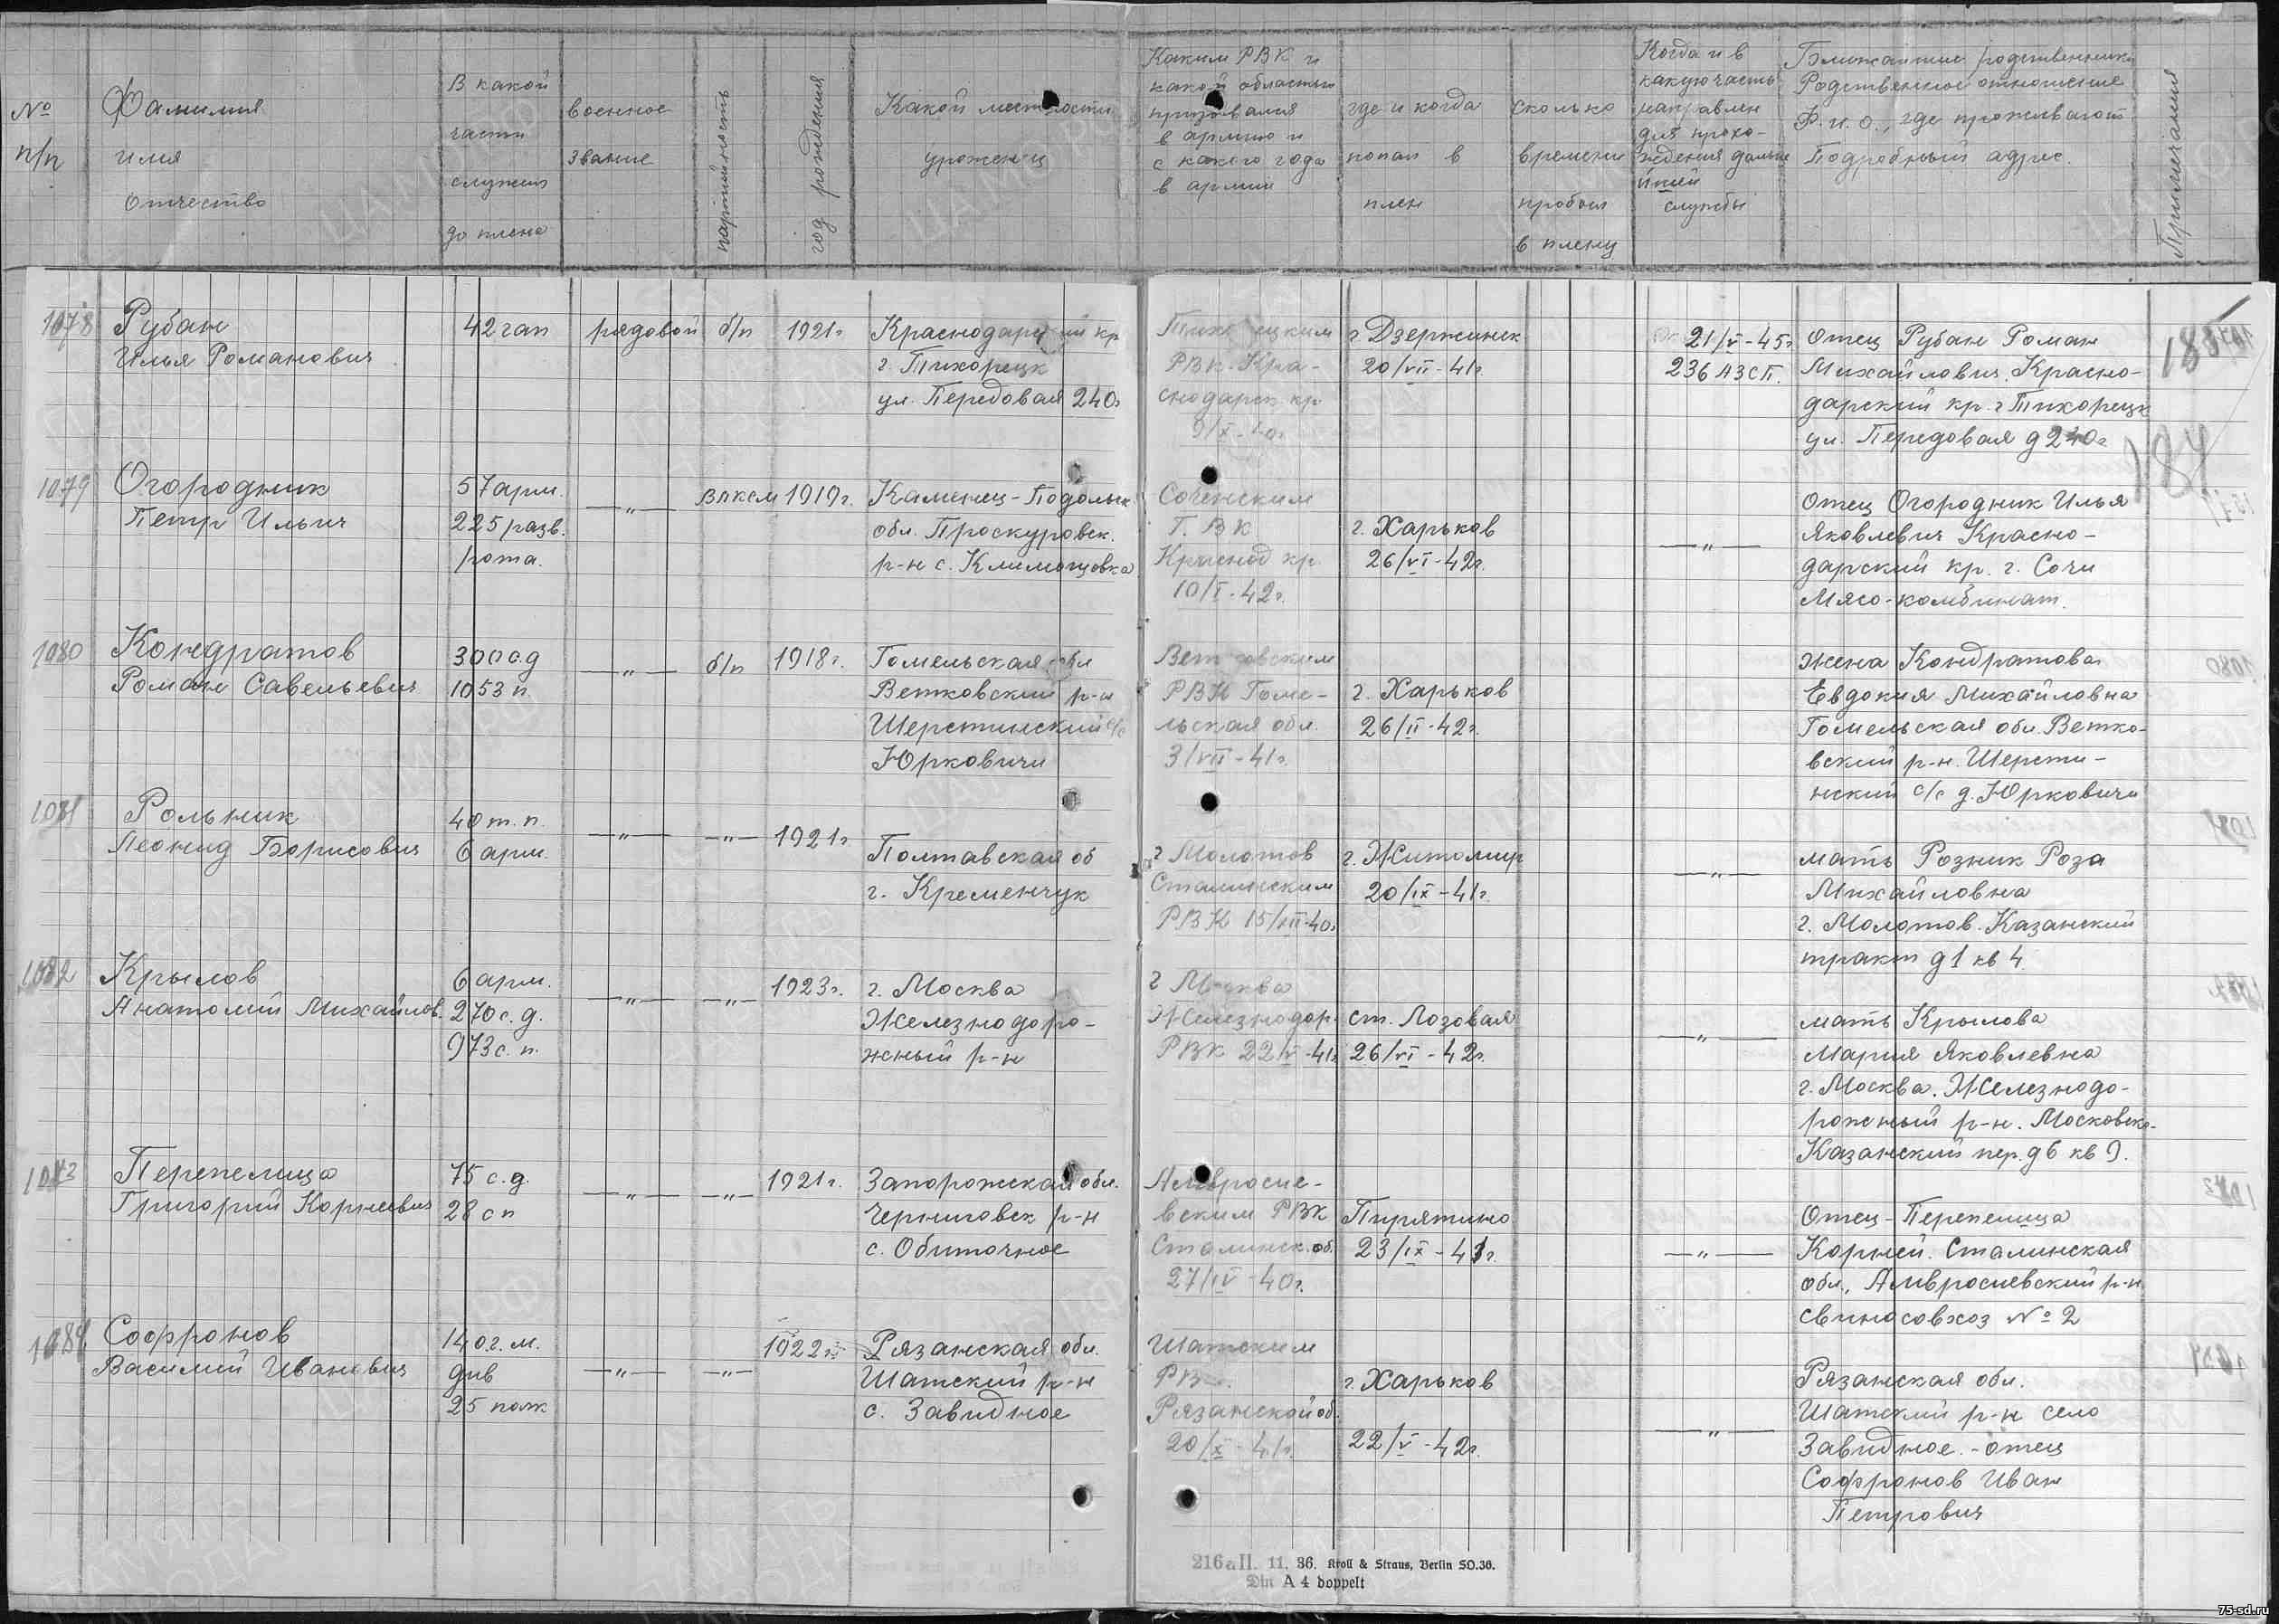 №
п/п
Фамилия
имя
отчество
В какой
части
служил
до плена
военное
звание
партийность
год рождения
Какой местности
уроженец
Каким РВК и
какой областью
призывался
в армию и
с какого года
в армии
где и когда
попал в
плен
сколько
времени
пробыл
в плену
Когда и в
какую часть
направлен
для прохо-
ждения дальне
йшей
службы
Ближайшие родственники
Родственное отношение
Ф. и. о., где проживают
Подробный адрес.
Примечания
1078
Рубан
Илья Романович
42 гап
рядовой
б/п
1921г
Краснодарский кр
г. Тихорецк
ул. Передовая 240г
Тихорецким
РВК. Кра-
снодарск. кр
9/X-40г
г Дзержинск
20/VII-41г.
21/V-45г
236 АЗСП.
отец Рубан Роман
Михайлович. Красно-
дарский кр. г Тихорецк
ул. Передовая д 240г
188
187
1079
Огородник
Петр Ильич
57 арм.
225 разв.
рота.
—"—
ВЛКСМ
1919г.
Каменец-Подольск
обл. Проскуровск.
р-н с. Климашовка
Сочинским
Г. ВК
Краснод кр
10/I-42г.
г. Харьков
26/VI-42г.
—"—
отец Огородник Илья
Яковлевич Красно-
дарский кр. г. Сочи
Мясо-комбинат.
1080
Кондратов
Роман Савельевич
300 с.д
1053 п.
—"—
б/п
1918г.
Гомельская обл
Ветковский р-н
Шерстинский с/с
Юрковичи
Ветковским
РВК Гоме-
льская обл.
3/VII-41г.
г. Харьков
26/II-42г.
жена Кондратова
Евдокия Михайловна
Гомельская обл. Ветко-
вский р-н. Шерсти-
нский с/с д. Юрковичи
1081
Рольник
Леонид Борисович
40 т. п.
6 арм.
—"—
—"—
1921г
Полтавская об
г. Кременчук
г Молотов
Сталинским
РВК 15/VII-40г
г. Житомир
20/IX-41г.
—"—
мать Розник Роза
Михайловна
г. Молотов. Казанский
тракт д 1 кв 4
1082
Крылов
Анатолий Михайлов.
6 арм.
270 с. д.
973 с. п.
—"—
—"—
1923г.
г. Москва
Железнодоро-
жный р-н
г Москва
Железнодор.
РВК 22/V-41г
ст. Лозовая
26/VI-42г.
—"—
мать Крылова
Мария Яковлевна
г. Москва. Железнодо-
рожный р-н. Московско-
Казанский пер. д 6 кв 9.
1083
Перепелица
Григорий Корнеевич
75 с. д.
28 сп
—"—
—"—
1921г.
Запорожская обл.
Черниговск р-н
с. Обиточное
Амвросие-
вским РВК
Сталинск. об.
27/IV-40г.
Пирятино
23/IX-41г.
—"—
Отец-Перепелица
Корней. Сталинская
обл., Амвросиевский р-н
свиносовхоз № 2
1084
Софронов
Василий Иванович
140 г. м.
див
25 полк
—"—
—"—
1922г.
Рязанская обл.
Шатский р-н
с. Завидное
Шатским
РВК.
Рязанской об.
20/X-41г.
г. Харьков
22/V-42г.
—"—
Рязанская обл.
Шатский р-н село
Завидное.-отец
Софронов Иван
Петрович
216a II. 11. 36. Kroll & Straus, Berlin SO.36.
Din A 4 doppelt
75-sd.ru